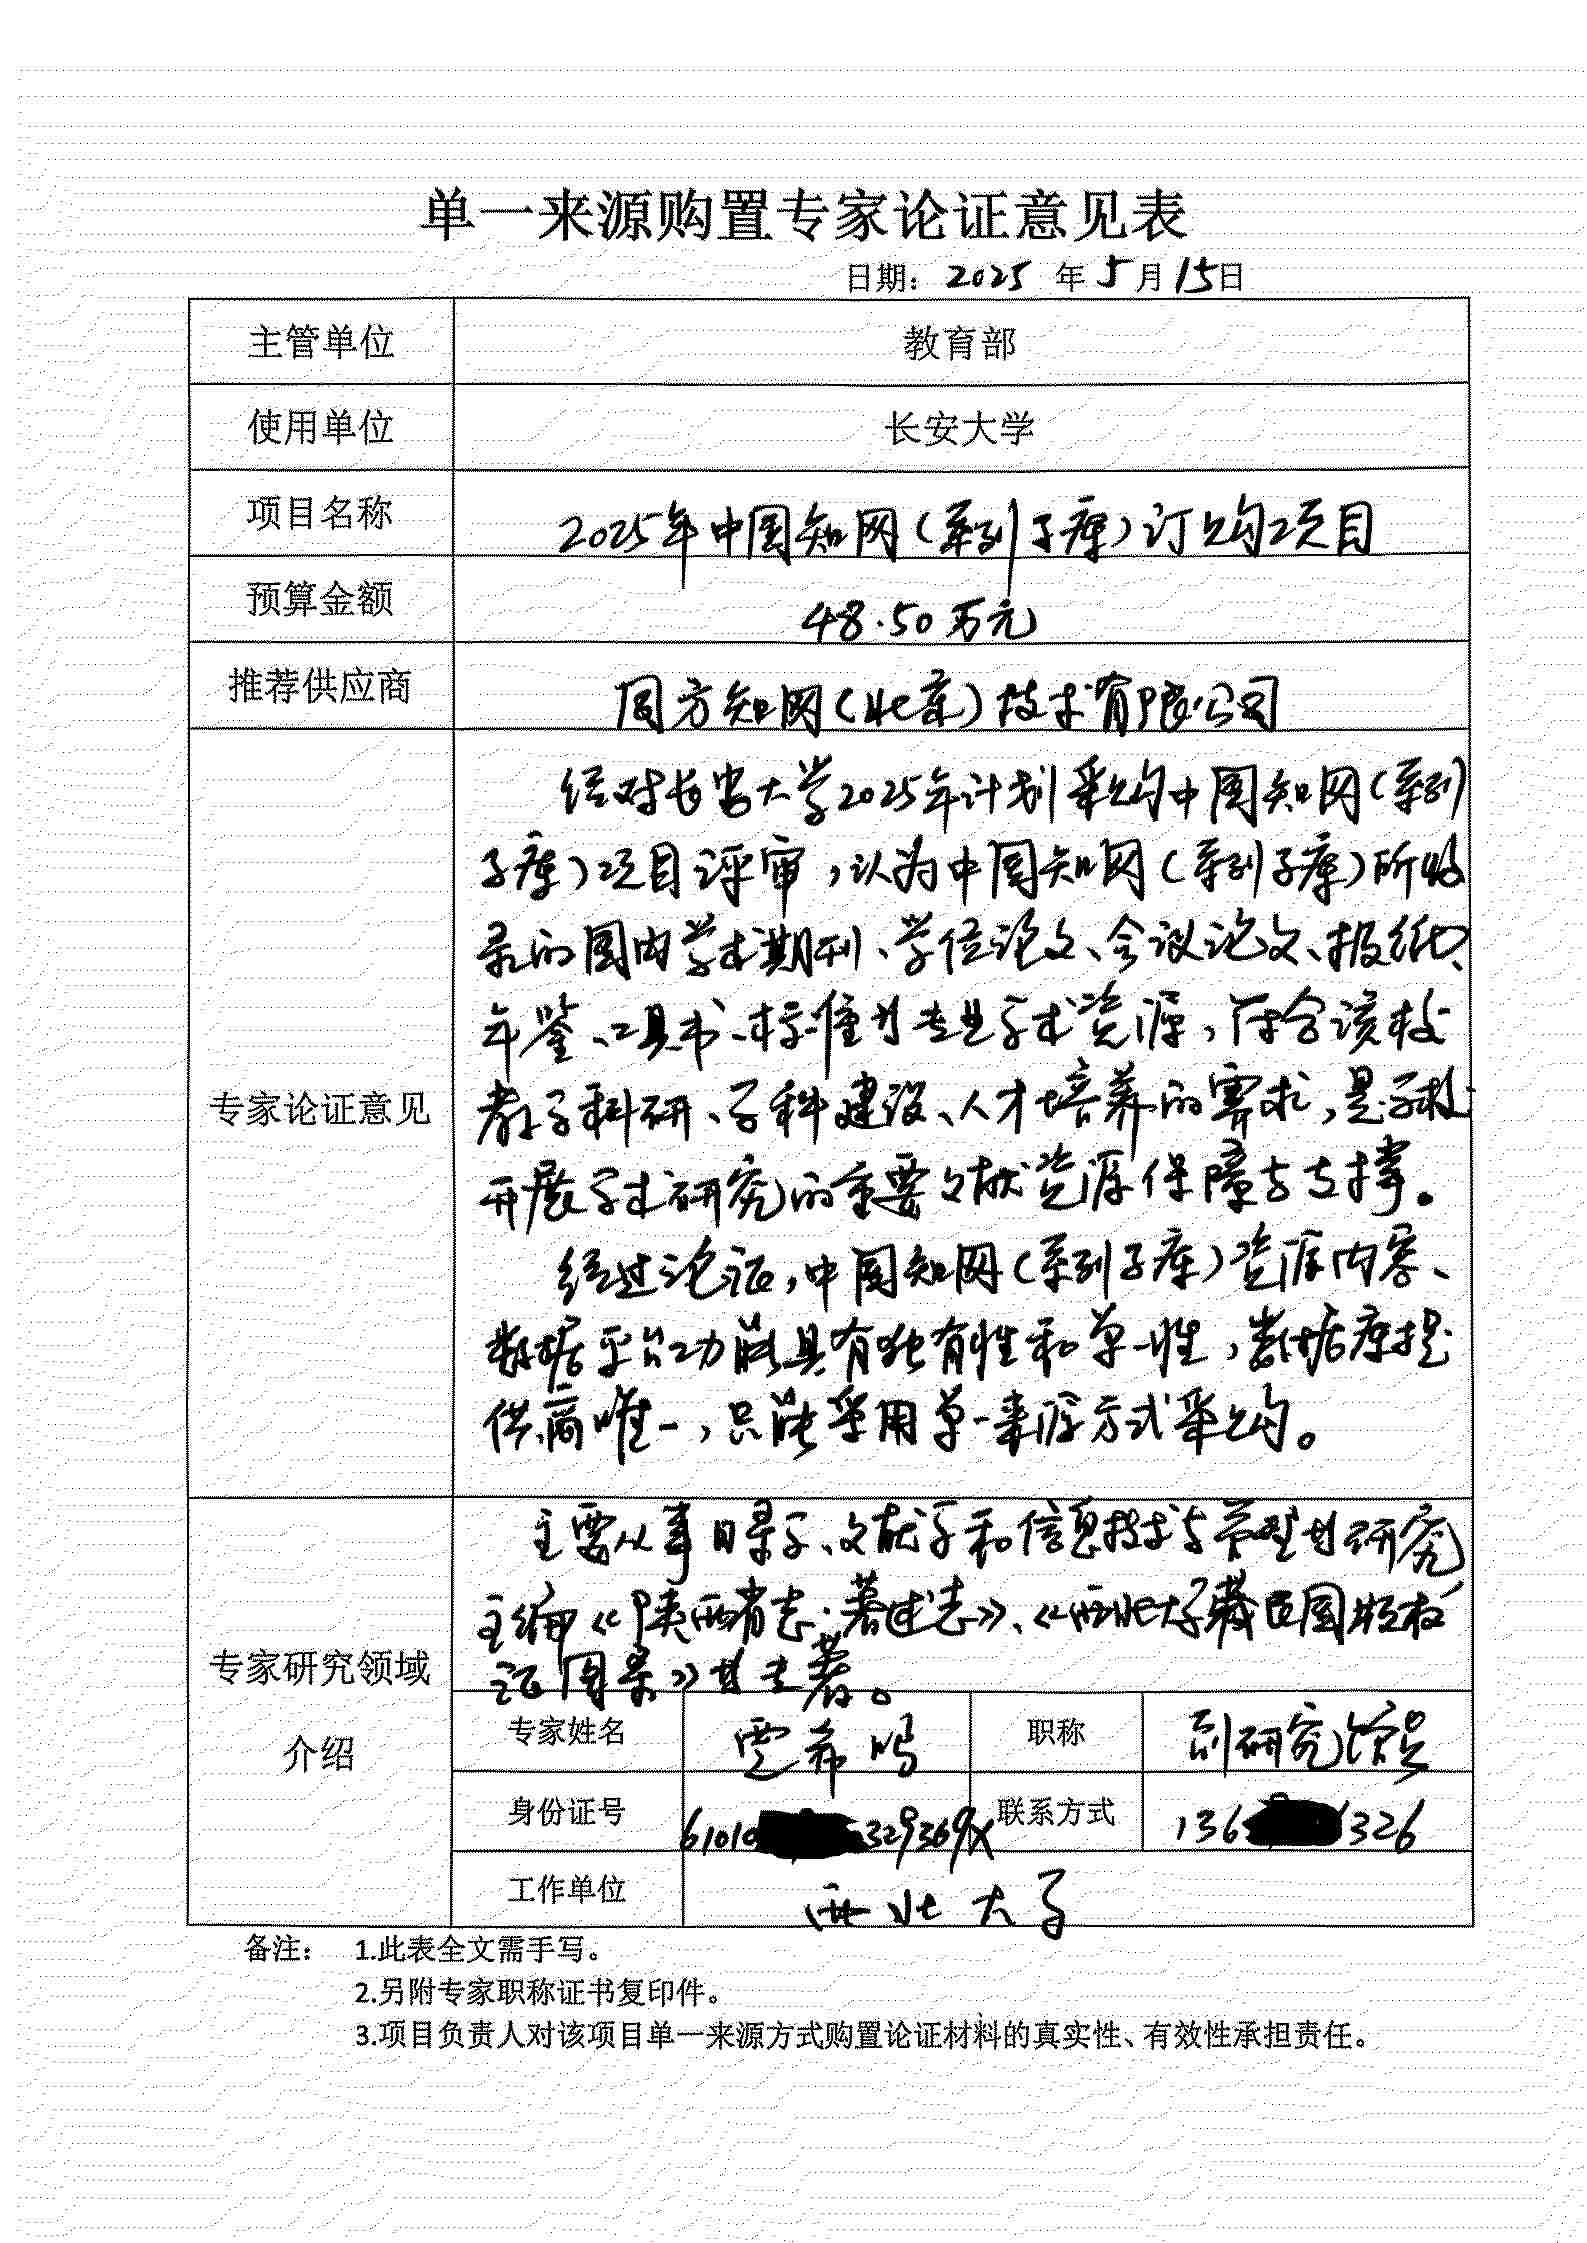 单一来源购置专家论证意见表
日期：2025 年 5 月 15 日
主管单位 教育部
使用单位 长安大学
项目名称 2025年中国知网(系列子库)订购项目
预算金额 48.50万元
推荐供应商 同方知网(北京)技术有限公司
经对长安大学2025年计划采购中国知网(系列
子库)项目评审,认为中国知网(系列子库)所收
录的国内学术期刊、学位论文、会议论文、报纸、
年鉴、工具书、标准等专业学术资源,符合该校
专家论证意见
教学科研、学科建设、人才培养的需求,是学校
开展学术研究的重要文献资源保障与支撑。
经过论证,中国知网(系列子库)资源内容、
数据平台功能具有独有性和单一性,数据库提
供商唯一,只能采用单一来源方式采购。
主要从事目录学、文献学和信息技术与管理等研究
主编《陕西省志·著述志》、《西北大学藏民国版权
证图录》等专著。
专家研究领域
介绍
专家姓名 贾希鸣 职称 副研究馆员
身份证号 61010 329369X 联系方式 136 326
工作单位 西北大学
备注： 1.此表全文需手写。
2.另附专家职称证书复印件。
3.项目负责人对该项目单一来源方式购置论证材料的真实性、有效性承担责任。